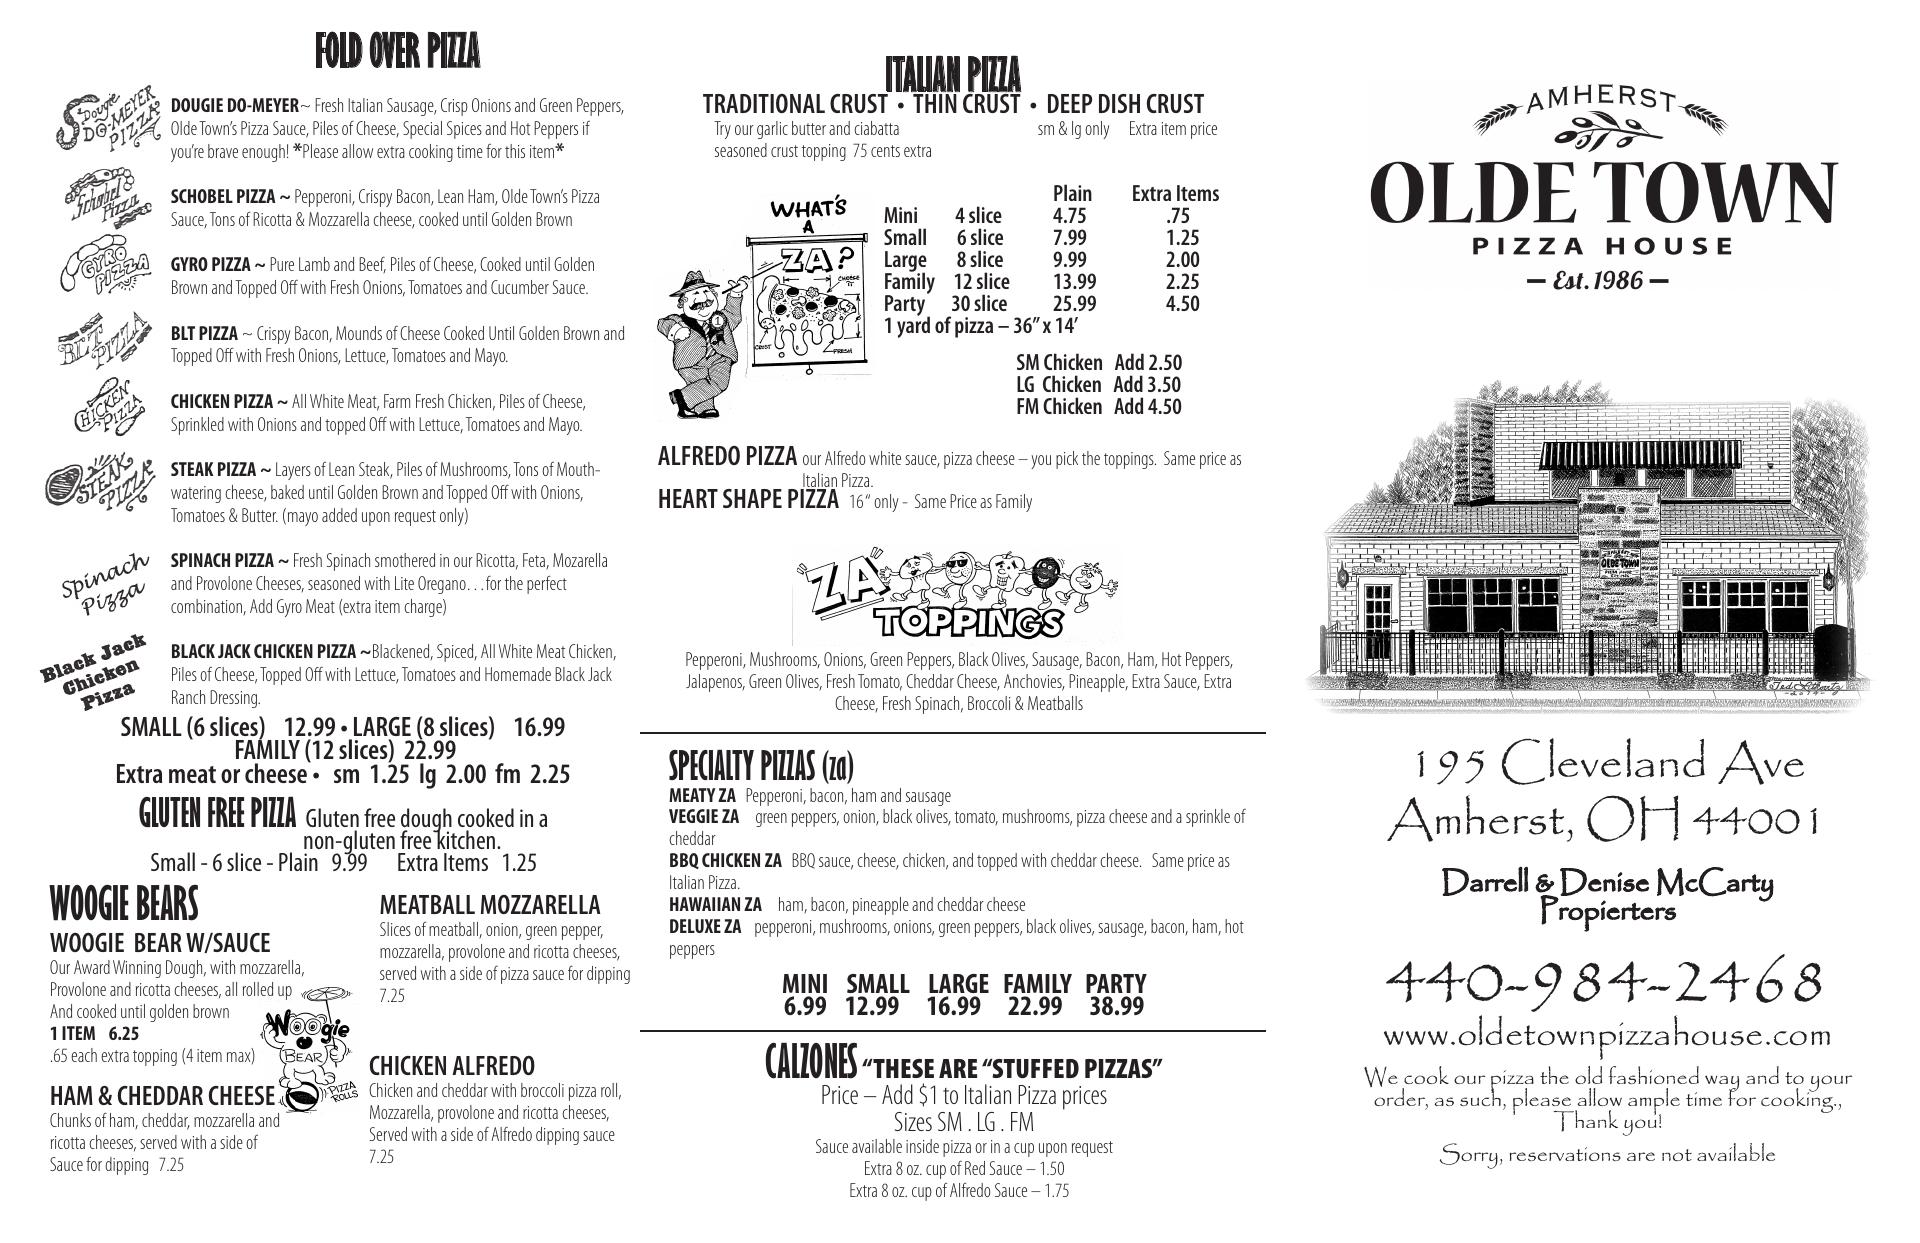 FOLD OVER PIZZA
Dougie DO-MEYER PIZZA
DOUGIE DO-MEYER~ Fresh Italian Sausage, Crisp Onions and Green Peppers,
Olde Town's Pizza Sauce, Piles of Cheese, Special Spices and Hot Peppers if
you're brave enough! *Please allow extra cooking time for this item*
Schobel Pizza
SCHOBEL PIZZA ~ Pepperoni, Crispy Bacon, Lean Ham, Olde Town's Pizza
Sauce, Tons of Ricotta & Mozzarella cheese, cooked until Golden Brown
GYRO PIZZA
GYRO PIZZA ~ Pure Lamb and Beef, Piles of Cheese, Cooked until Golden
Brown and Topped Off with Fresh Onions, Tomatoes and Cucumber Sauce.
BLT PIZZA
BLT PIZZA ~ Crispy Bacon, Mounds of Cheese Cooked Until Golden Brown and
Topped Off with Fresh Onions, Lettuce, Tomatoes and Mayo.
CHICKEN PIZZA
CHICKEN PIZZA ~ All White Meat, Farm Fresh Chicken, Piles of Cheese,
Sprinkled with Onions and topped Off with Lettuce, Tomatoes and Mayo.
STEAK PIZZA
STEAK PIZZA ~ Layers of Lean Steak, Piles of Mushrooms, Tons of Mouth-
watering cheese, baked until Golden Brown and Topped Off with Onions,
Tomatoes & Butter. (mayo added upon request only)
Spinach Pizza
SPINACH PIZZA ~ Fresh Spinach smothered in our Ricotta, Feta, Mozarella
and Provolone Cheeses, seasoned with Lite Oregano. . . for the perfect
combination, Add Gyro Meat (extra item charge)
Black Jack Chicken Pizza
BLACK JACK CHICKEN PIZZA ~Blackened, Spiced, All White Meat Chicken,
Piles of Cheese, Topped Off with Lettuce, Tomatoes and Homemade Black Jack
Ranch Dressing.
SMALL (6 slices) 12.99 • LARGE (8 slices) 16.99
FAMILY (12 slices) 22.99
Extra meat or cheese • sm 1.25 lg 2.00 fm 2.25
GLUTEN FREE PIZZA Gluten free dough cooked in a
non-gluten free kitchen.
Small - 6 slice - Plain 9.99 Extra Items 1.25
WOOGIE BEARS
WOOGIE BEAR W/SAUCE
Our Award Winning Dough, with mozzarella,
Provolone and ricotta cheeses, all rolled up
And cooked until golden brown
1 ITEM 6.25
.65 each extra topping (4 item max)
HAM & CHEDDAR CHEESE
Chunks of ham, cheddar, mozzarella and
ricotta cheeses, served with a side of
Sauce for dipping 7.25
Woogie
BEAR
PIZZA
ROLLS
MEATBALL MOZZARELLA
Slices of meatball, onion, green pepper,
mozzarella, provolone and ricotta cheeses,
served with a side of pizza sauce for dipping
7.25
CHICKEN ALFREDO
Chicken and cheddar with broccoli pizza roll,
Mozzarella, provolone and ricotta cheeses,
Served with a side of Alfredo dipping sauce
7.25
ITALIAN PIZZA
TRADITIONAL CRUST • THIN CRUST • DEEP DISH CRUST
Try our garlic butter and ciabatta sm & lg only Extra item price
seasoned crust topping 75 cents extra
WHAT'S
A
ZA?
CHEESE
CRUST
FRESH
1
Plain Extra Items
Mini 4 slice 4.75 .75
Small 6 slice 7.99 1.25
Large 8 slice 9.99 2.00
Family 12 slice 13.99 2.25
Party 30 slice 25.99 4.50
1 yard of pizza – 36” x 14’
SM Chicken Add 2.50
LG Chicken Add 3.50
FM Chicken Add 4.50
ALFREDO PIZZA our Alfredo white sauce, pizza cheese – you pick the toppings. Same price as
Italian Pizza.
HEART SHAPE PIZZA 16“ only - Same Price as Family
ZA
TOPPINGS
Pepperoni, Mushrooms, Onions, Green Peppers, Black Olives, Sausage, Bacon, Ham, Hot Peppers,
Jalapenos, Green Olives, Fresh Tomato, Cheddar Cheese, Anchovies, Pineapple, Extra Sauce, Extra
Cheese, Fresh Spinach, Broccoli & Meatballs
SPECIALTY PIZZAS (za)
MEATY ZA Pepperoni, bacon, ham and sausage
VEGGIE ZA green peppers, onion, black olives, tomato, mushrooms, pizza cheese and a sprinkle of
cheddar
BBQ CHICKEN ZA BBQ sauce, cheese, chicken, and topped with cheddar cheese. Same price as
Italian Pizza.
HAWAIIAN ZA ham, bacon, pineapple and cheddar cheese
DELUXE ZA pepperoni, mushrooms, onions, green peppers, black olives, sausage, bacon, ham, hot
peppers
MINI SMALL LARGE FAMILY PARTY
6.99 12.99 16.99 22.99 38.99
CALZONES “THESE ARE “STUFFED PIZZAS”
Price – Add $1 to Italian Pizza prices
Sizes SM . LG . FM
Sauce available inside pizza or in a cup upon request
Extra 8 oz. cup of Red Sauce – 1.50
Extra 8 oz. cup of Alfredo Sauce – 1.75
AMHERST
OLDE TOWN
PIZZA HOUSE
– Est. 1986 –
OLDE TOWN
195 Cleveland Ave
Amherst, OH 44001
Darrell & Denise McCarty
Propierters
440-984-2468
www.oldetownpizzahouse.com
We cook our pizza the old fashioned way and to your
order, as such, please allow ample time for cooking.,
Thank you!
Sorry, reservations are not available